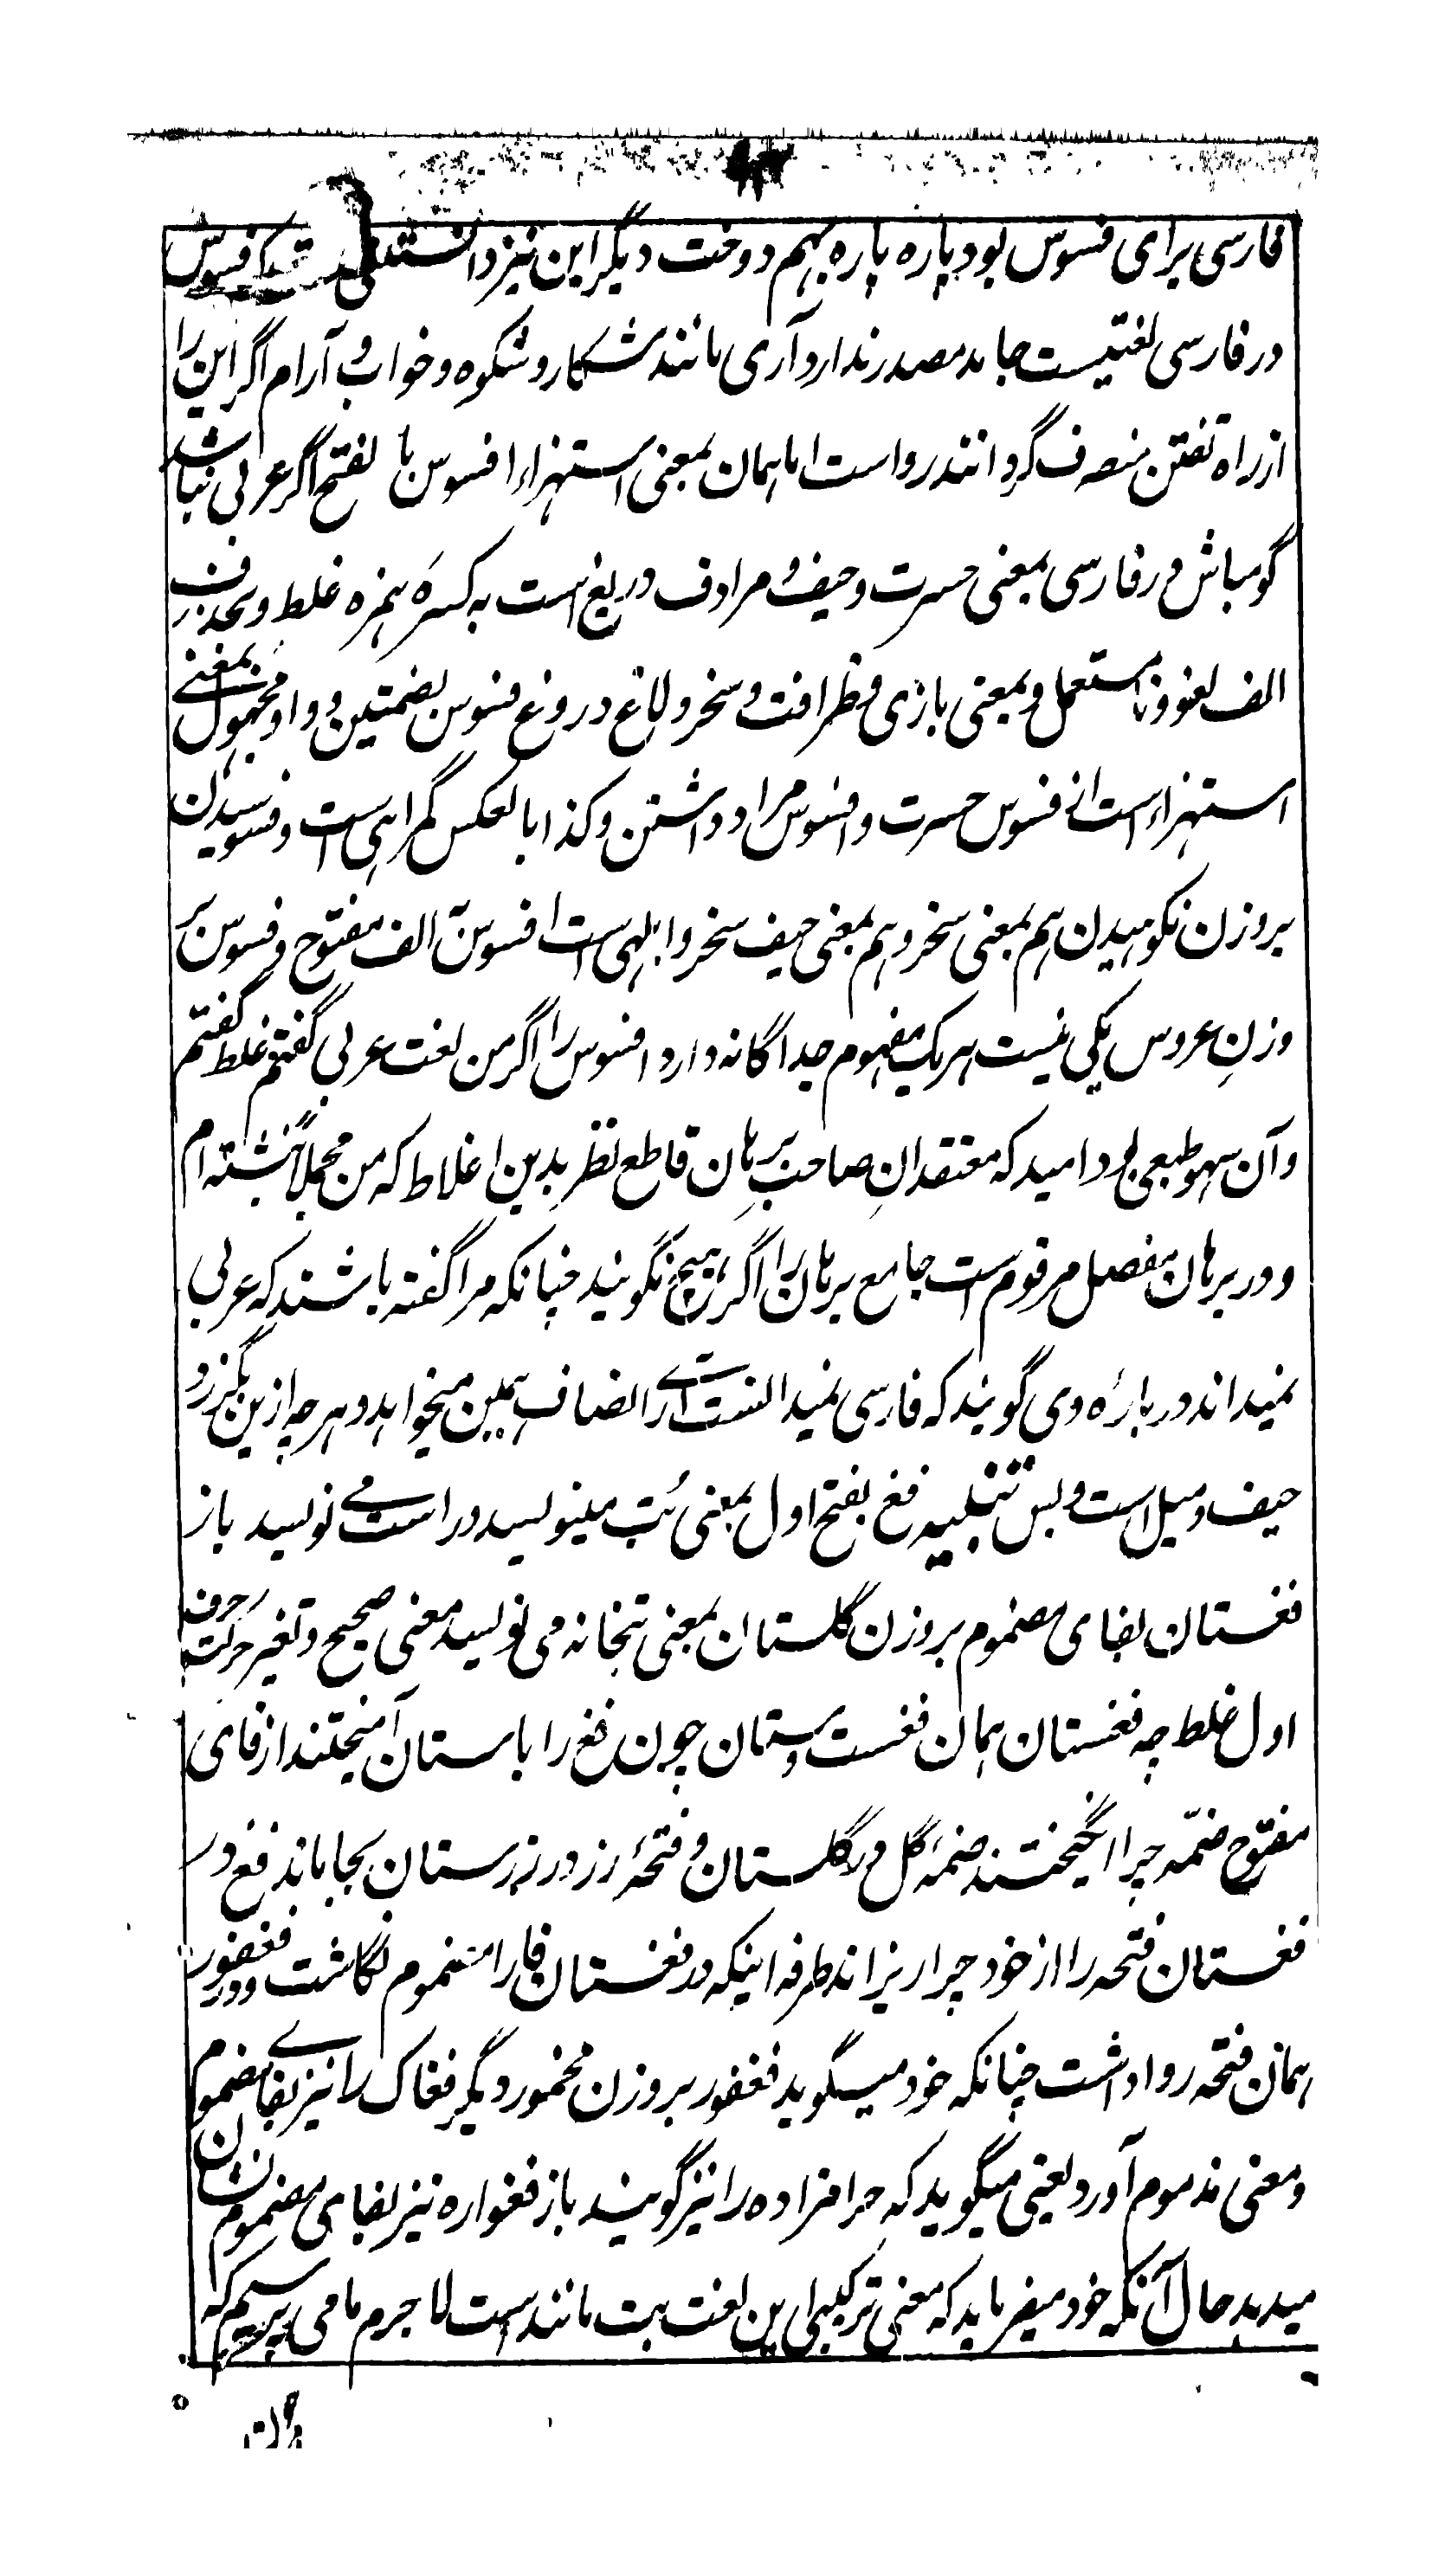 فارسی برای فسوس بود پاره پاره بهم دوخت دیگر این نیز دانستنی که فسوس
در فارسی لغتیست جامد مصدر ندارد آری مانند شکار و شکوه و خواب و آرام اگر این را
از راه تفنن منصرف گردانند رواست اما همان بمعنی استهزاء افسوس بالفتح اگر عربی نباشد
گو مباش در فارسی بمعنی حسرت و حیف و مرادف دریغ است به کسرهٔ همزه غلط و بحذف
الف لغو و نامستعمل و بمعنی بازی و ظرافت و سخر و لاغ دروغ فسوس بضمتین و واو مجهول بمعنی
استهزاء است از فسوس حسرت و افسوس مراد داشتن و کذا بالعکس گمراهی است و فسوسیدن
بروزن نکوهیدن هم بمعنی سخر و هم بمعنی حیف سخر و ابلهی است افسوس بالف مفتوح و فسوس بر
وزنِ عروس یکی نیست هر یک مفهوم جداگانه دارد افسوس را اگر من لغت عربی گفتم غلط گفتم
و آن سهو طبعی بود امید که معتقدانِ صاحبِ برهان قاطع نظر بدین اغلاط که من مجملاً نبشته‌ام
و در برهان مفصل مرقوم است جامع برهان را اگر هیچ نگویند چنانکه مرا گفته باشند که عربی
نمیداند دربارهٔ وی گویند که فارسی نمیدانست آرے انصاف همین میخواهد و هر چه ازین بگذرد
حیف و میل است و بس تنبیه فغ بفتح اول بمعنی بُت مینویسد و راست می نویسد باز
فغستان بفای مضموم بروزن گلستان بمعنی بتخانه می نویسد معنی صحیح و تغیر حرکت حرف
اول غلط چه فغستان همان فغست و ستان چون فغ را با ستان آمیختند از فای
مفتوح ضمّه چرا انگیختند ضمهٔ گل در گلستان و فتحهٔ رز در رزستان بجا ماند فغ در
فغستان فتحه را از خود چرا ریزاند طرفه اینکه در فغستان فا را مضموم نگاشت و در فغفور
همان فتحه روا داشت چنانکه خود میگوید فغفور بروزن مخمور دیگر فغاک را نیز بفای مضموم
و معنی مذموم آورد یعنی میگوید که حرامزاده را نیز گویند باز فغواره نیز بفای مضموم نشان
میدهد حال آنکه خود میفرماید که معنی ترکیبی این لغت بت مانند است لاجرم ما می پرسیم که